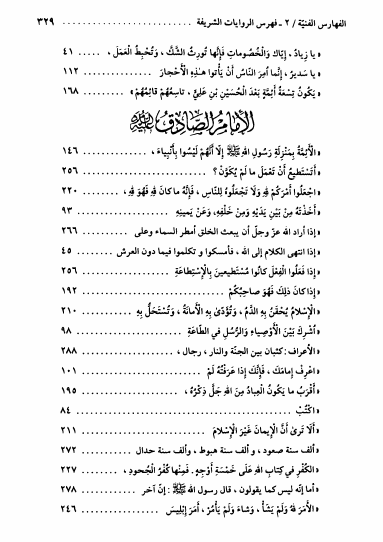 الفهارس الفنيّة / ٢ ـ فهرس الروايات الشريفة ........................ ٣٢٩
« يا زِيادُ ، إيّاكَ وَالْخُصوماتِ فَإنَّها تُورِثُ الشَّكَّ ، وَتُحْبِطُ الْعَمَلَ ، .... ٤١
« يا سَديرُ ، إنَّما اُمِرَ النّاسُ أنْ يَأْتُوا هٰذِهِ الْأحْجارَ ........... ١١٢
« يَكُونُ تِسْعَةُ أئِمَّةٍ بَعْدَ الْحُسَيْنِ بْنِ عَلِيٍّ ، تاسِعُهُمْ قائِمُهُمْ » ...... ١٦٨
الإمام الصّادق
« الْأئِمَّةُ بِمَنْزِلَةِ رَسُولِ اللهِ ﷺ إلّا أنَّهُمْ لَيْسُوا بِأنْبِياءَ ، .......... ١٤٦
« أتَسْتَطيعُ أنْ تَعْمَلَ ما لَمْ يُكَوَّنْ ؟ ..................... ٢٥٦
« اجْعَلُوا أمْرَكُمْ لِلهِ وَلا تَجْعَلُوهُ لِلنّاسِ ، فَإنَّهُ ما كانَ لِلهِ فَهُوَ لِلهِ ، ...... ٢٢٠
« أخَذْتُهُ مِنْ بَيْنِ يَدَيْهِ وَمِنْ خَلْفِهِ، وَعَنْ يَمينِهِ ............ ٩٣
« إذا أراد الله عزّ وجلّ أن يبعث الخلق أمطر السماء وعلى ....... ٢٦٦
« إذا انتهى الكلام إلى الله ، فأمسكوا و تكلموا فيما دون العرش ..... ٤٥
« إذا فَعَلُوا الْفِعْلَ كانُوا مُسْتَطيعينَ بِالْاِسْتِطاعَةِ ............ ٢٥٦
« إذا كانَ ذلِكَ فَهُوَ صاحِبُكُمْ ........................ ١٩٢
« الْإسْلامُ يُحْقَنُ بِهِ الدَّمُ ، وَتُؤَدّىٰ بِهِ الْأمانَةُ ، وَتُسْتَحَلُّ بِهِ ....... ٢١٠
« اُشْرِكَ بَيْنَ الْأوْصِياءِ وَالرُّسُلِ فِي الطّاعَةِ ................ ٩٨
« الأعراف : كثبان بين الجنّة والنار ، رجال ، ............... ٢٨٨
« اعْرِفْ إمامَكَ ، فَإنَّكَ إذا عَرَفْتَهُ لَمْ .................. ١٠١
« أقْرَبُ ما يَكُونُ الْعِبادُ مِنَ اللهِ جَلَّ ذِكْرُهُ ، ............. ١٩٥
« اكْتُبْ ................................... ٨٤
« ألا تَرىٰ أنَّ الْإيمانَ غَيْرُ الْإسْلامِ ................... ٢١١
« ألف سنة صعود ، و ألف سنة هبوط ، و ألف سنة حدال ......... ٢٧٢
« الْكُفْرُ في كِتابِ اللهِ عَلىٰ خَمْسَةِ أوْجُهٍ . فَمِنْها كُفْرُ الْجُحودِ ، ...... ٢٢٧
« أما إنّه ليس كما يقولون ، قال رسول الله ﷺ : إنّ آخر ........ ٢٧٨
« أمَرَ اللهُ وَلَمْ يَشَأْ ، وَشاءَ وَلَمْ يَأْمُرْ ، أمَرَ إبْليسَ ........... ٢٤٦